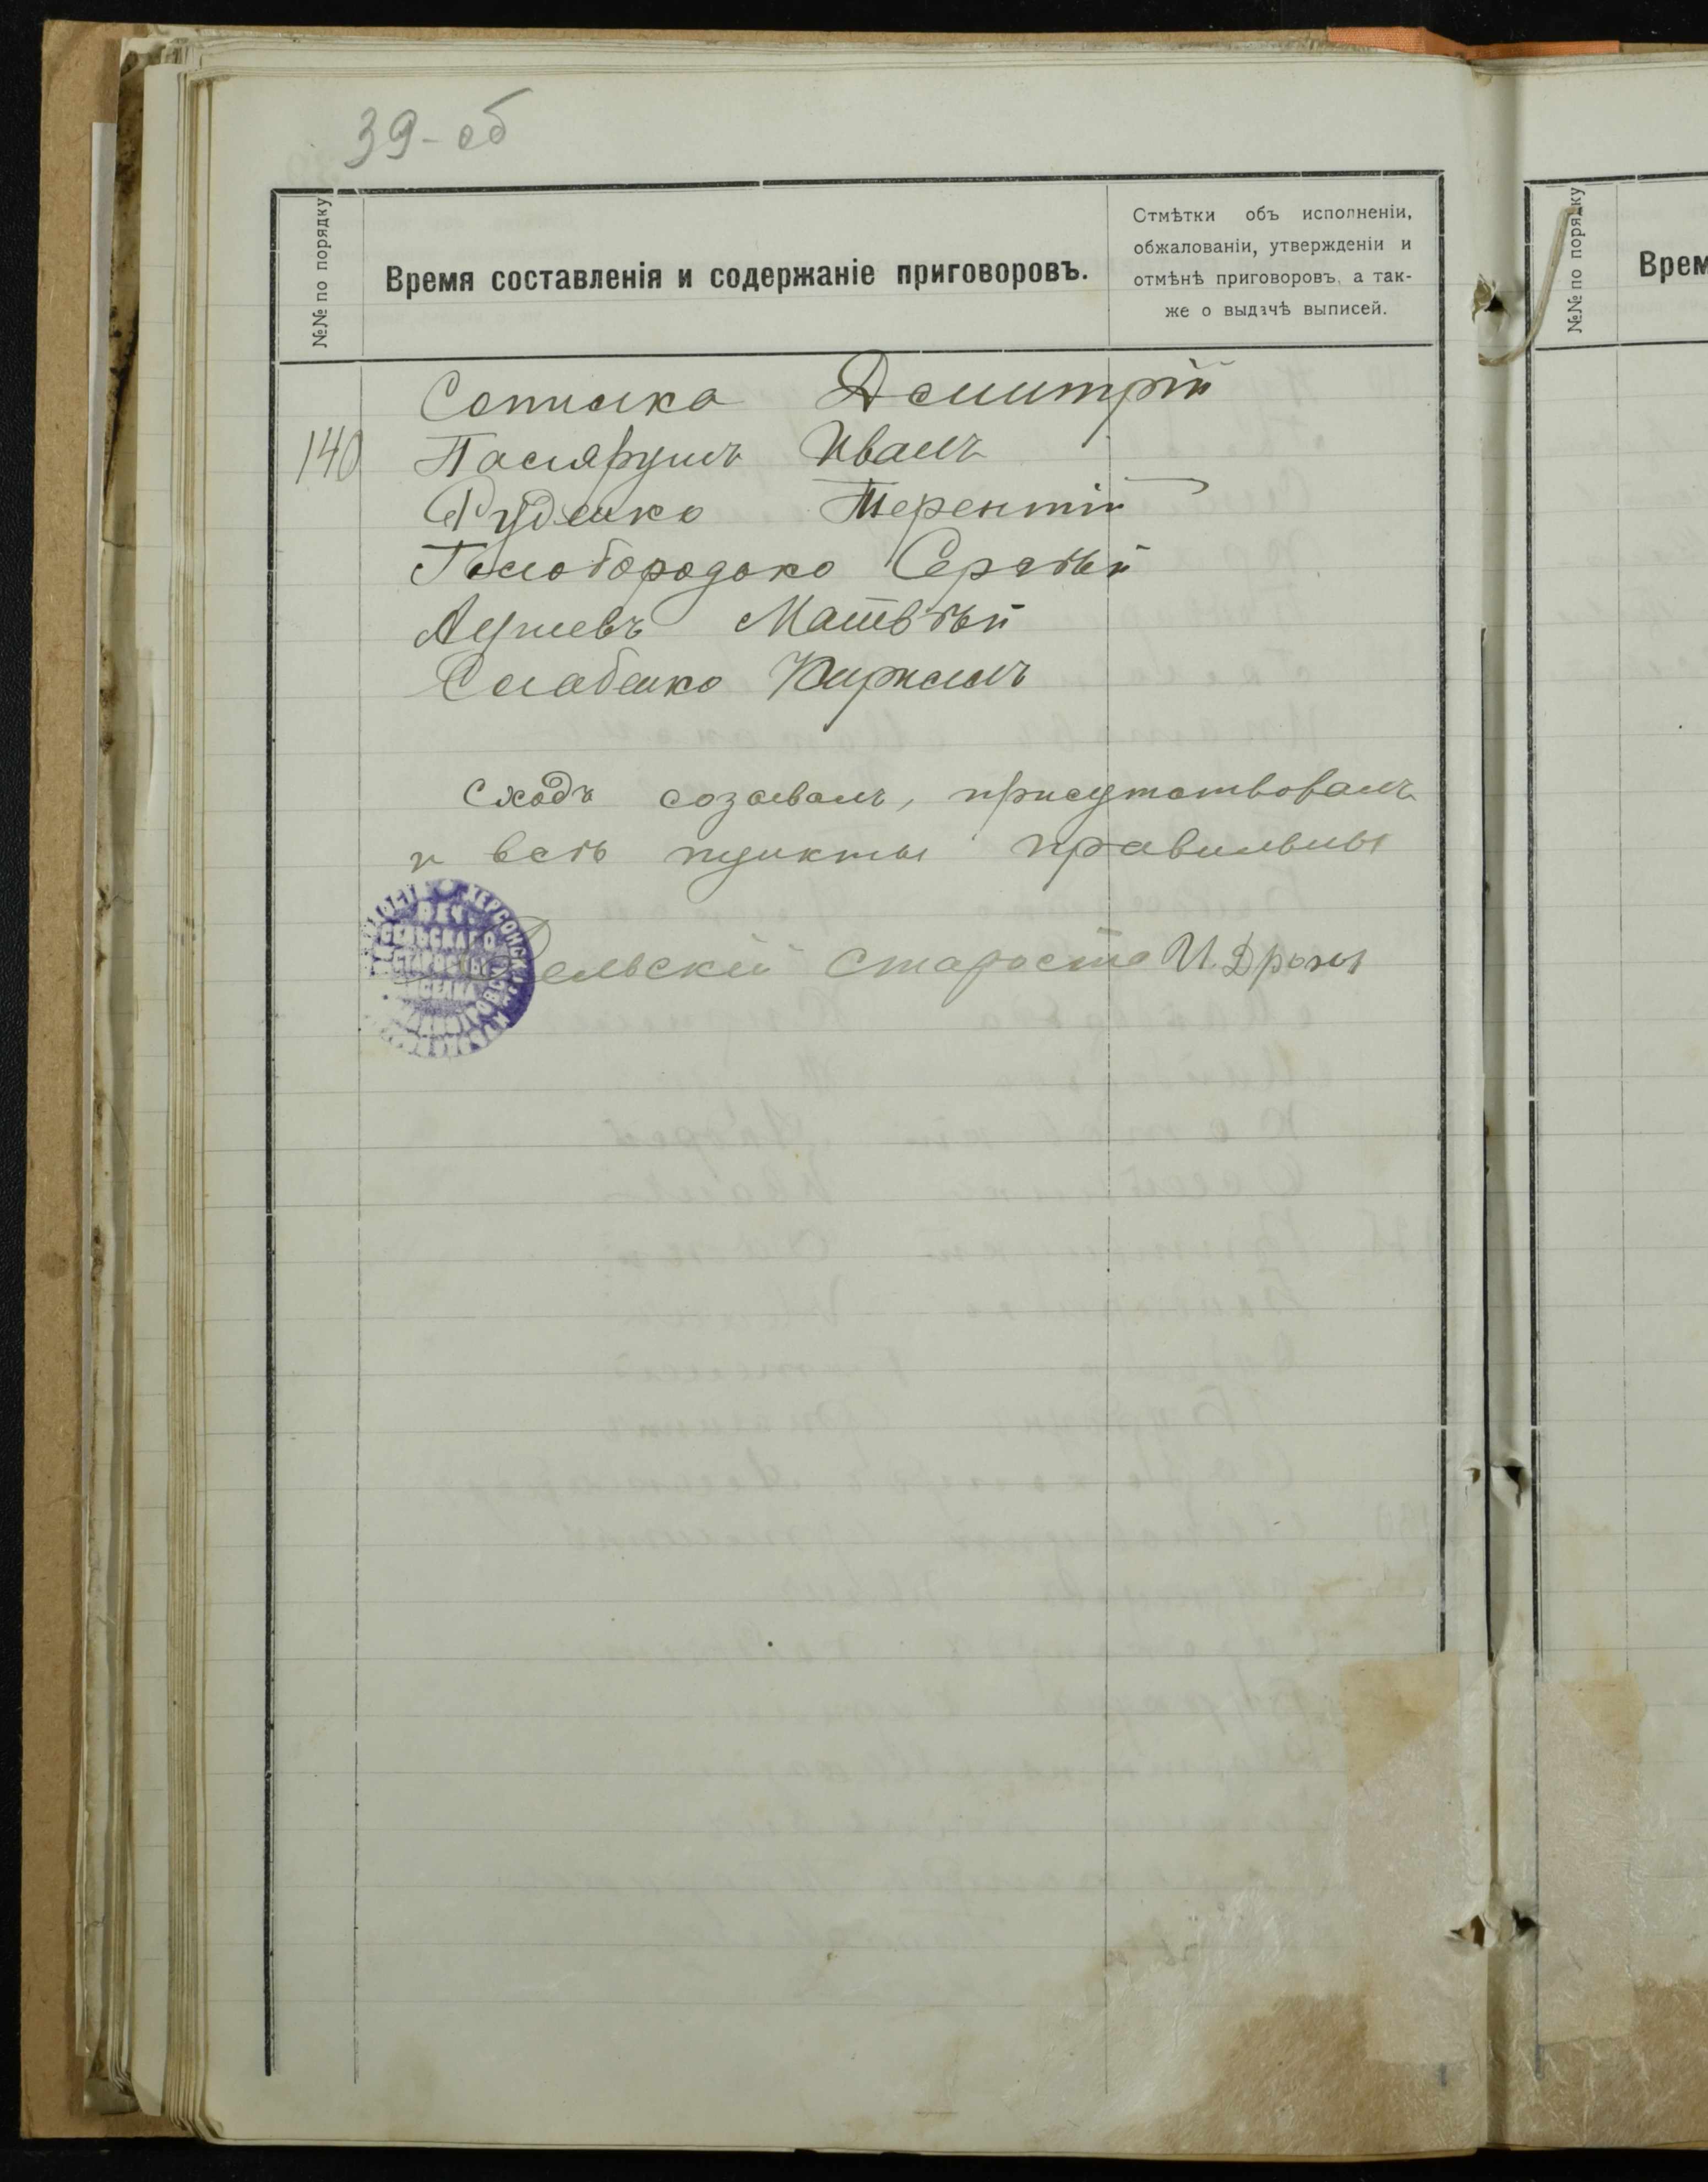 39-об
№№ по порядку
Время составленія и содержаніе приговоровъ.
Отмѣтки объ исполненіи,
обжалованіи, утвержденіи и
отмѣнѣ приговоровъ, а так-
же о выдачѣ выписей.
Дмитрій
140 Иванъ
Руденко Терентій
Голобородоко Сергѣй
Матвѣй
Слабенко Кирилъ
Сходъ созывалъ, присутствовалъ
и всѣ пункты правильны
Сельскій Староста И. Дрыга
ПЕЧ.
СЕЛЬСКАГО
СТАРОСТЫ
ХЕРСОНСК
№№ по порядку
Врем